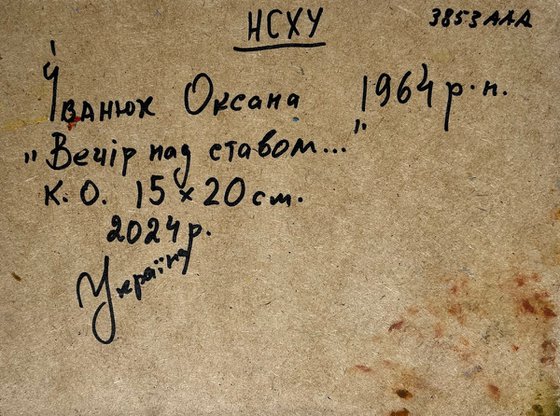 НСХУ 3853ААА
Іванюк Оксана 1964 р.н.
"Вечір над ставом..."
К.О. 15 × 20 см.
2024 р.
Україна